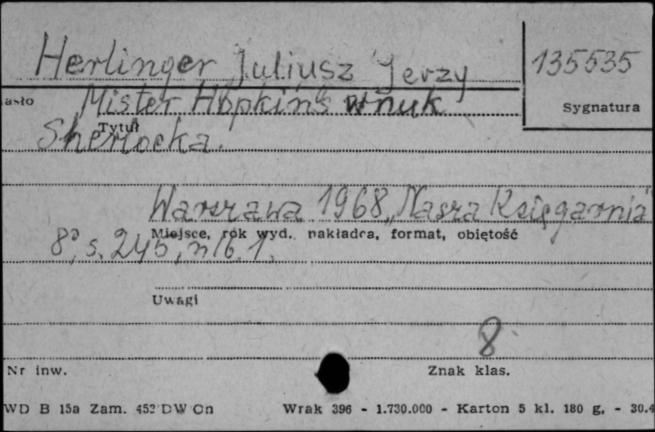 Herlinger Juliusz Jerzy
135535
asło
Mister Hopkins wnuk
Sygnatura
Tytuł
Sherlocka.
Warszawa 1968 „Nasza Księgarnia"
Miejsce, rok wyd., nakładca, format, objętość
8°, s. 245, nlb. 1.
Uwagi
8
Nr inw.
Znak klas.
WD B 15a Zam. 452 DW Cn
Wrak 396 - 1.730.000 - Karton 5 kl. 180 g. - 30.4